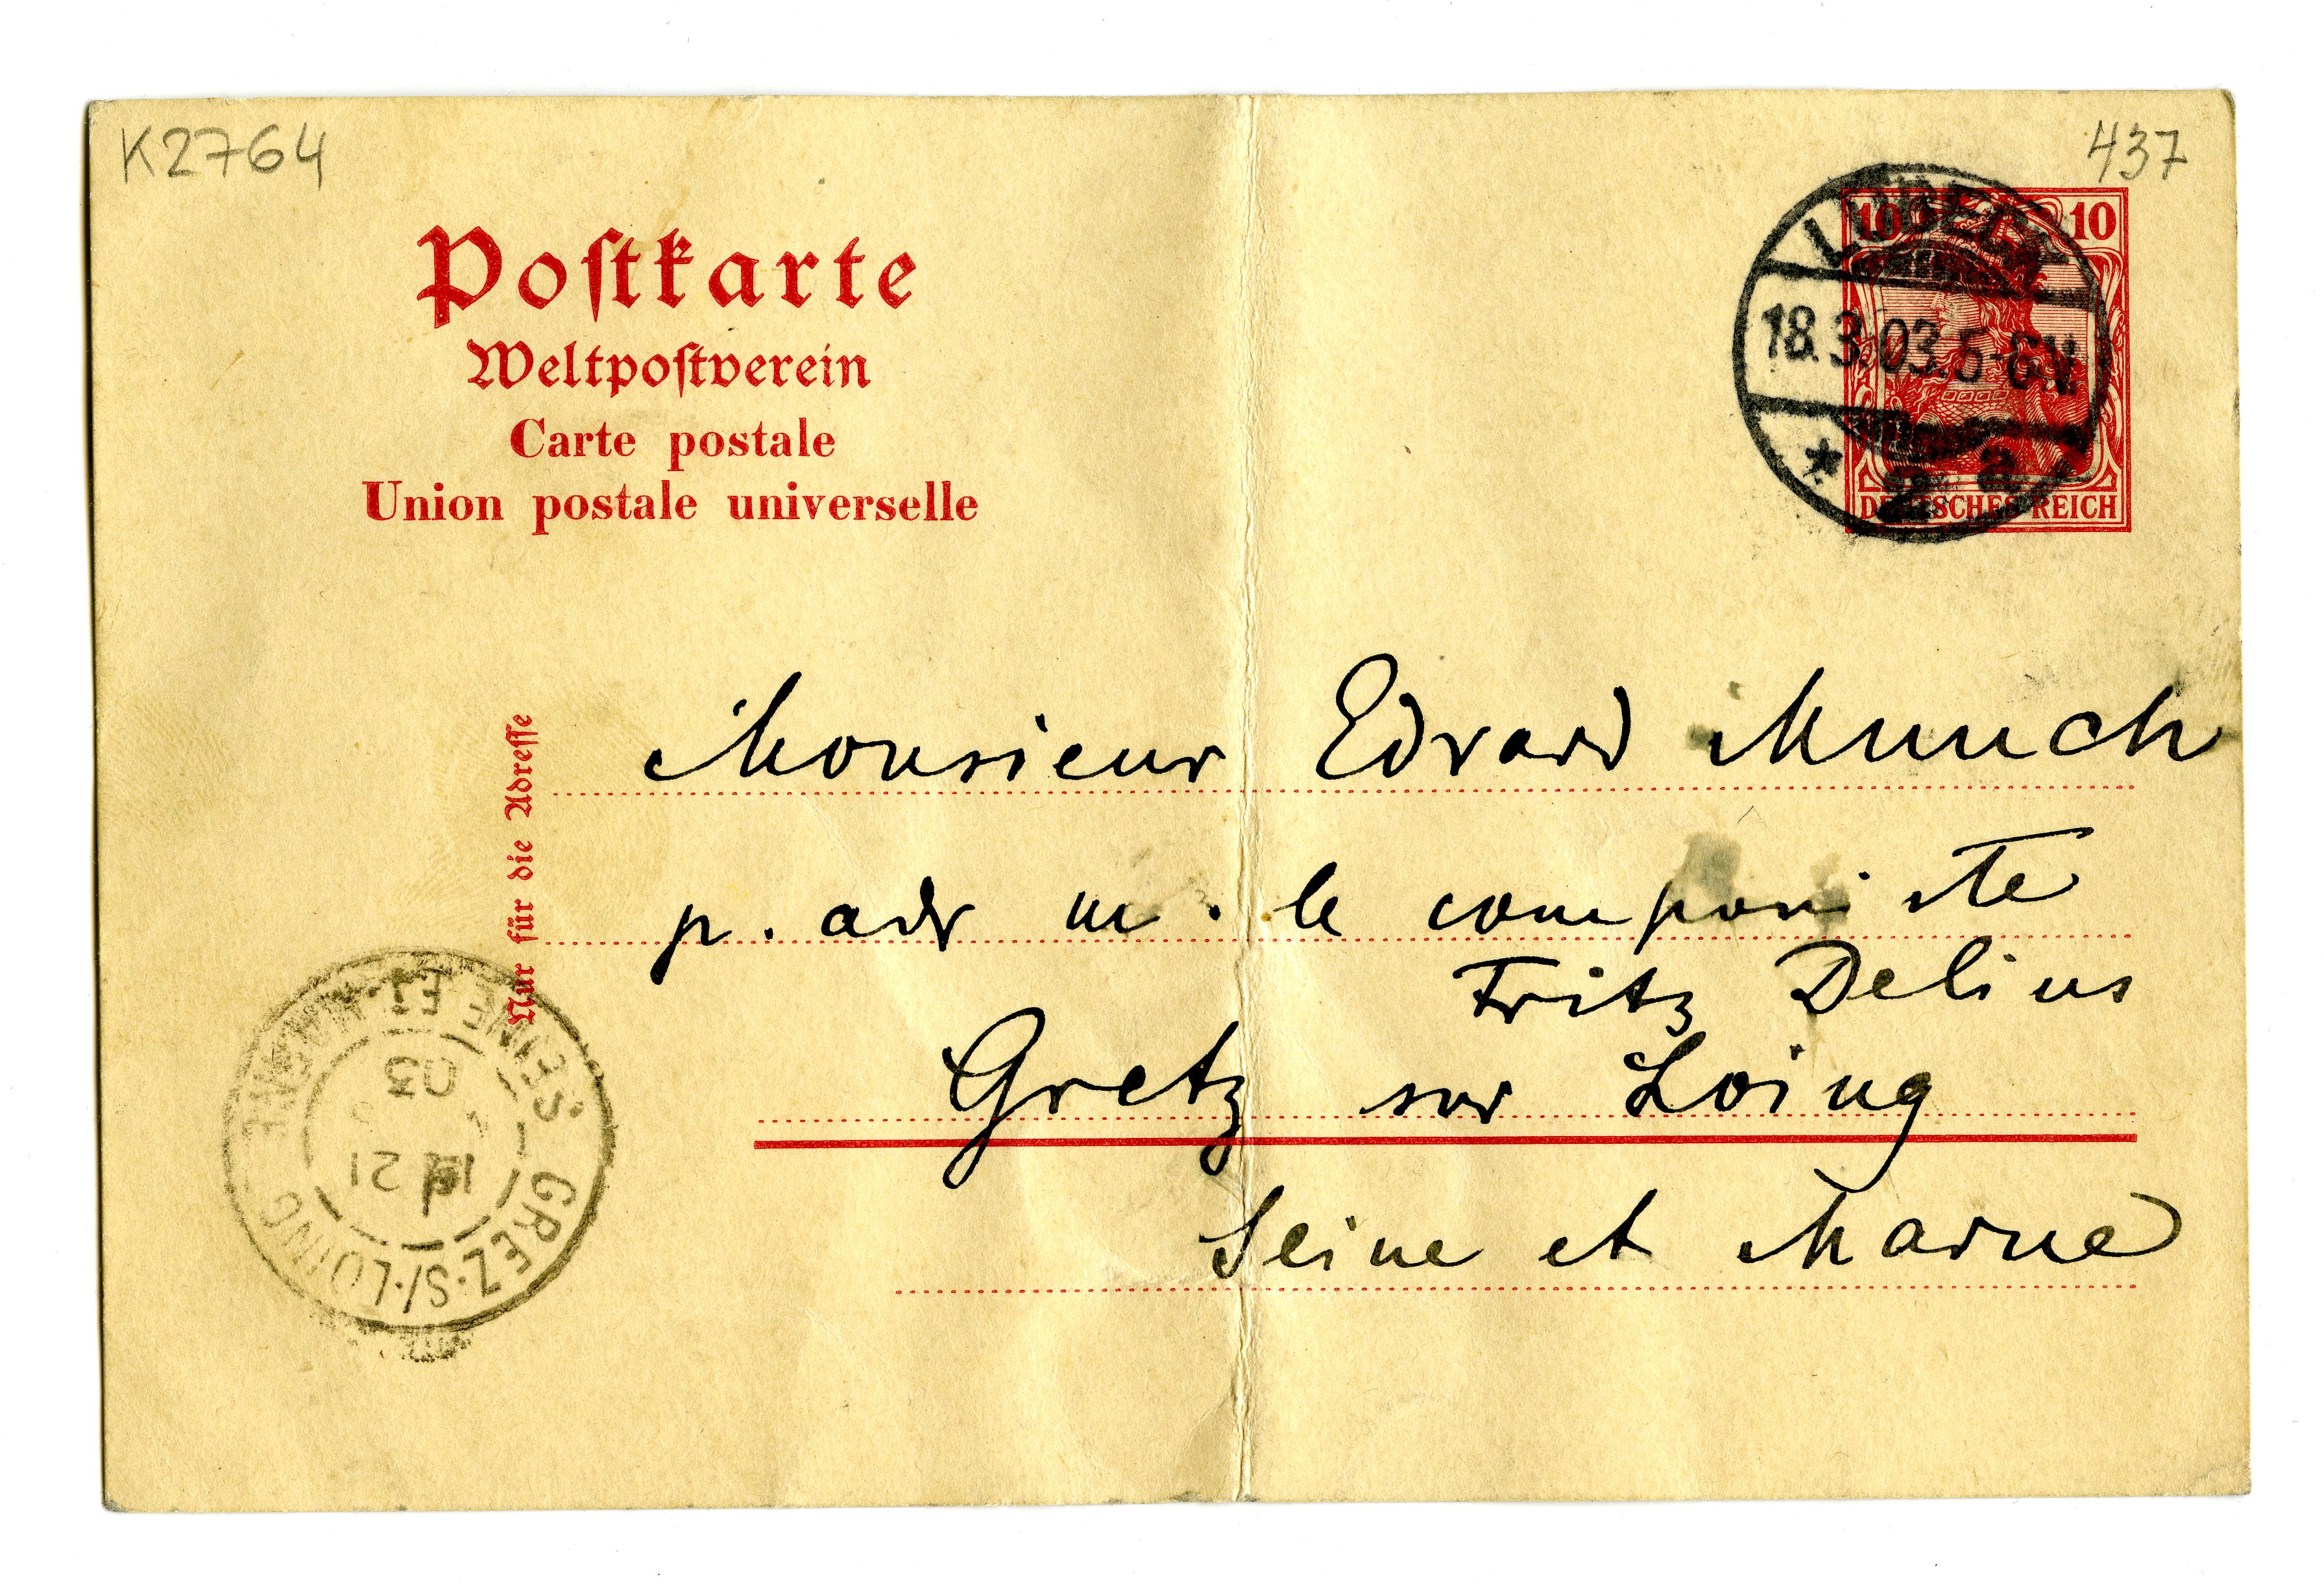 K2764
437
Postkarte
Weltpostverein
Carte postale
Union postale universelle
10 10
DEUTSCHES REICH
LÜBECK
18.3.03.5-6V.
* 2 a *
Nur für die Adresse
Monsieur Edvard Munch
p. adr m. le componiste
Fritz Delius
Gretz sur Loing
Seine et Marne
GREZ-S/-LOING
SEINE-ET-MARNE
21
03